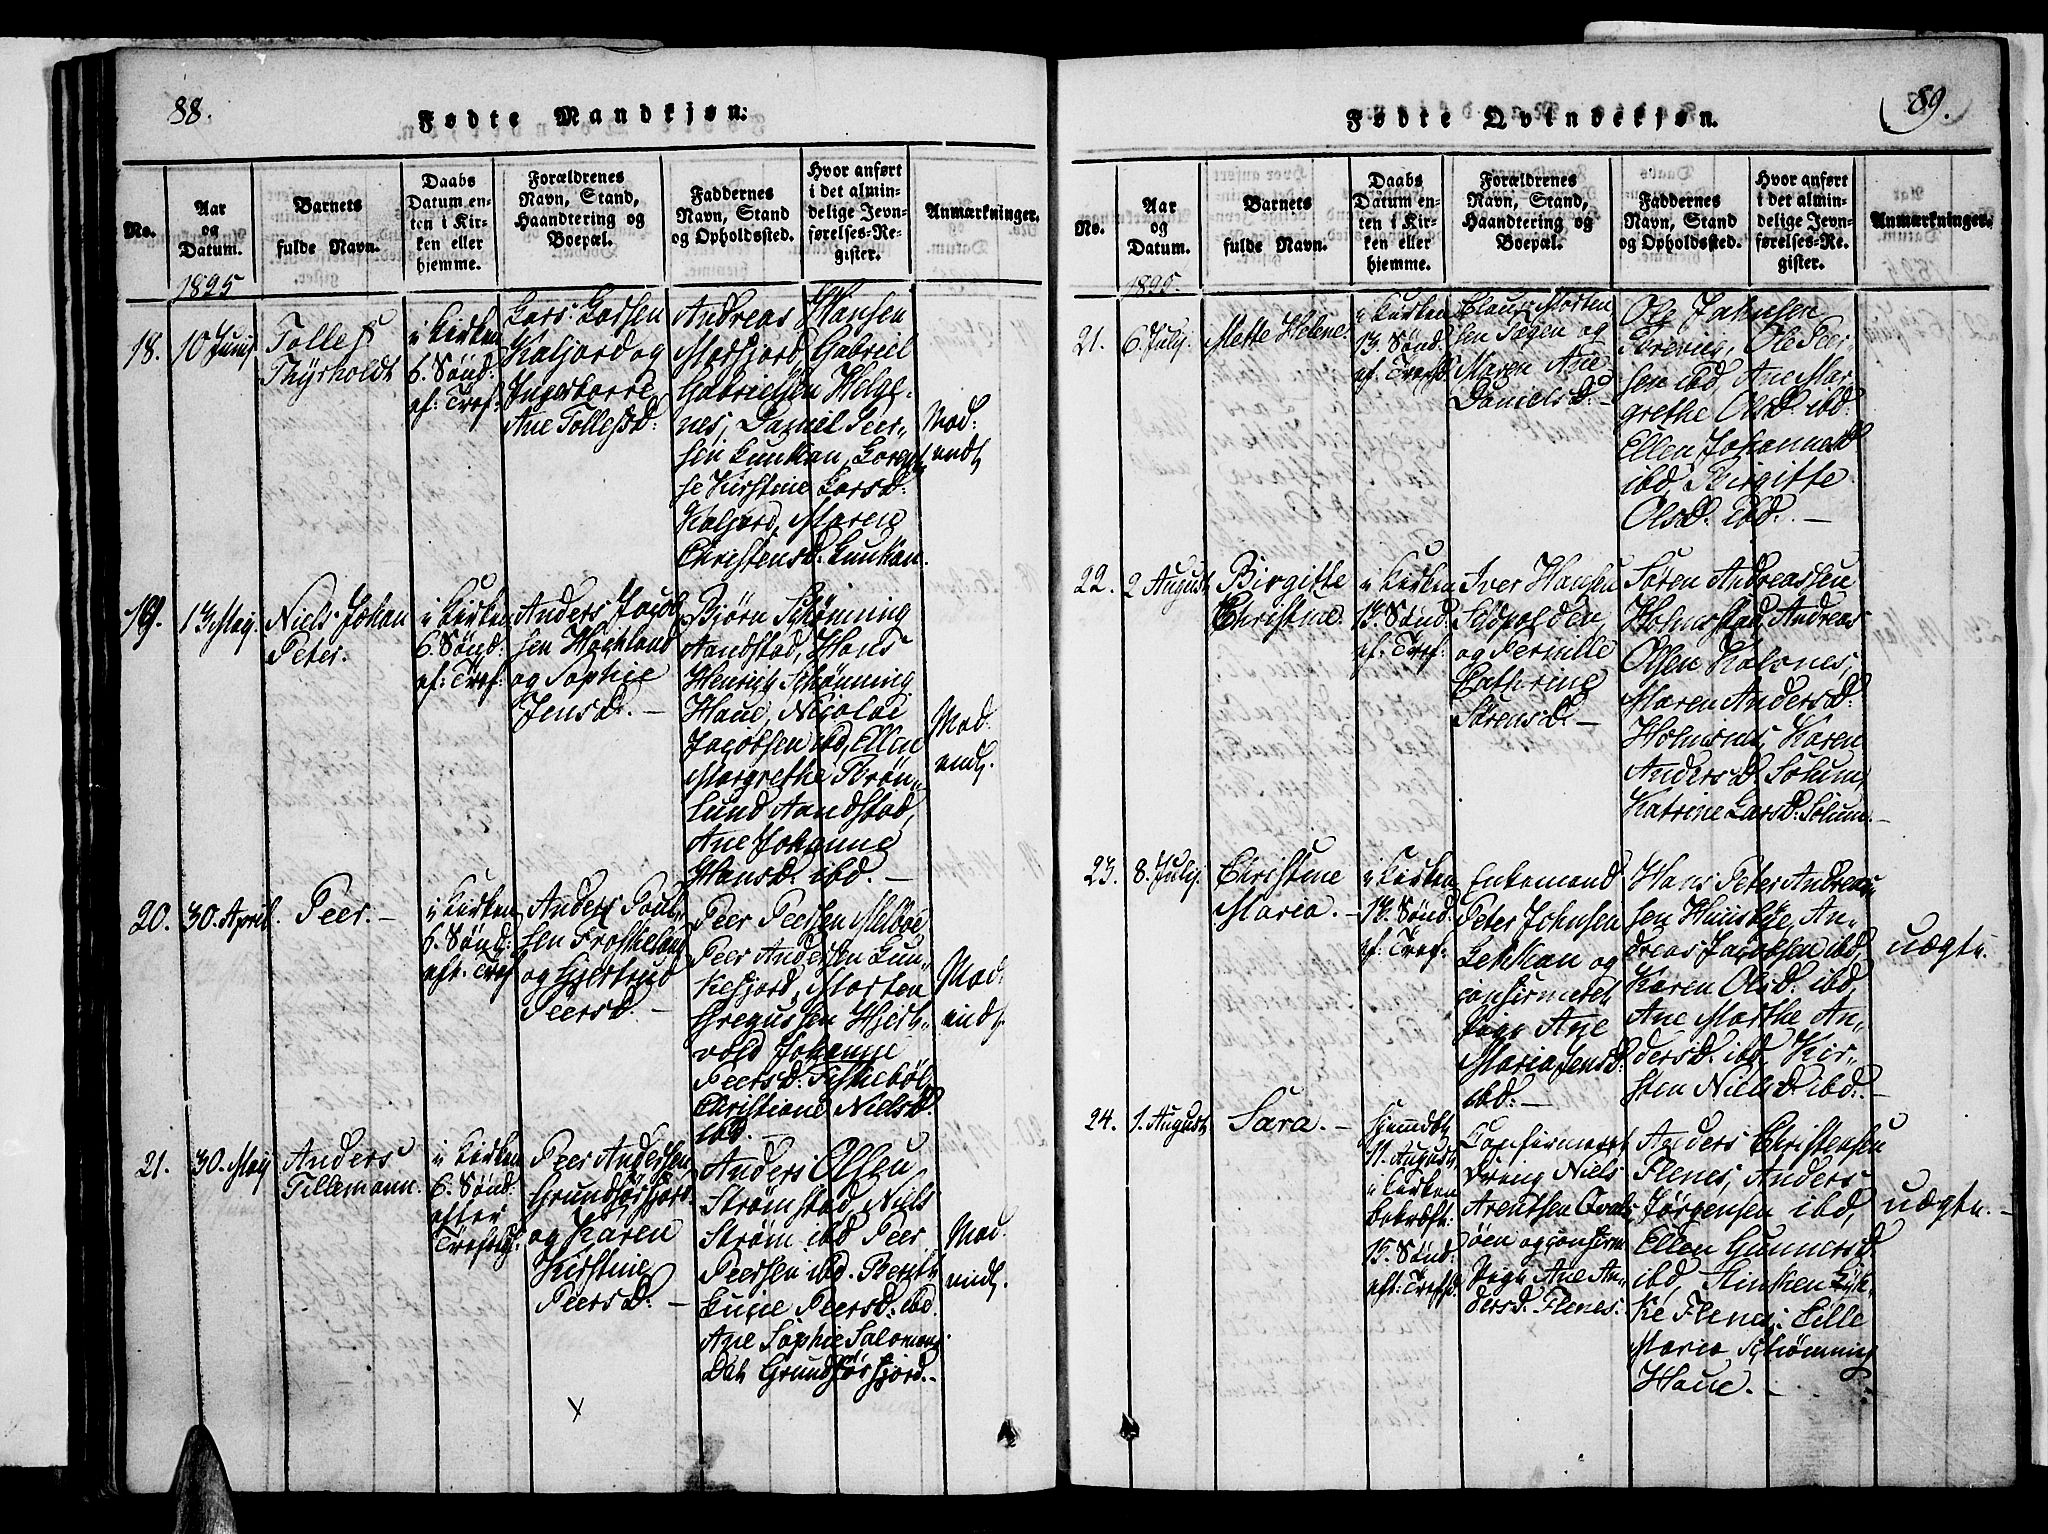 88.
Fødte Mandkjøn.
No.
Aar
og
Datum.
Barnets
fulde Navn.
Daabs
Datum en-
ten i Kir-
ken eller
hjemme.
Forældrenes
Navn, Stand,
Haandtering og
Boepæl.
Faddernes
Navn, Stand
og Opholdssted.
Hvor anført
i det almin-
delige Jevn-
førelses-Re-
gister.
Anmærkninger.
1825
18.
10 Junij
Tolless
Thyrholdt
i Kirken
6. Sønd:
ef: Tref:
Lars Larsen
Kaljord og
Ingeborre
Ane Tollesd:
Andreas Hansen
Morfjord, Gabriel
Gabrielsen Helge-
nes, Daniel Peer-
sen Kunkan, Loren-
se Kirstine Larsd:
Kaljord, Maren
Christensd. Kunkan.
Mod:
vndt
19.
13 Maj.
Niels Johan
Peter.
i Kirken
6. Sønd:
ef: Tref:
Anders Jacob
sen Hochland
og Sophie
Jensd. –
Bjørn Schønning
Aandstad, Hans
Henrich Schønning
Haue, Nicolai
Jacobsen ibd, Ellen
Margrethe Brøn-
lund Aandstad,
Ane Johanne
Hansd. ibd. –
Mod.
vndt.
20.
30. April.
Peer. –
i Kirken
6. Sønd:
eft. Tref.
Anders Poul-
sen Froskeland
og Gjertrud
Peersd. –
Peer Peersen Melboe
Peer Andersen Kun-
kefjord, Morten
Gregussen Hjert-
vold Johanne
Peersd. Fiskebøl,
Christiane Nielsd.
ibd. –
Mod.
vndt.
21.
30. Maij
Anders
Tillemann.
i Kirken
6. Sønd:
efter
Trefoltigh:
Peer Andersen
Grundførfjord.
og Karen
Kirstine
Peersd. –
Anders Olsen
Strømstad, Niels
Strøm ibd Peer
Peersen ibd. Berit
Lucie Peersd. ibd.
Ane Sophie Salomons
Dat Grundførfjord. –
Mod.
vndt.
x
89.
Fødte Qvindekjøn.
No.
Aar
og
Datum.
Barnets
fulde Navn.
Daabs
Datum en-
ten i Kir-
ken eller
hjemme.
Forældrenes
Navn, Stand,
Haandtering og
Boepæl.
Faddernes
Navn, Stand
og Opholdssted.
Hvor anført
i det almin-
delige Jevn-
førelses-Re-
gister.
Anmærkninger.
1825.
21.
6. Julij
Mette Helene.
i Kirken
13. Sønd.
ef. Trefd.
Claus Morten
sen Tøgen og
Maren Ane
Danielsd. –
Ole Johnsen
Breivig, Ole Peer-
sen ibd, Ane Mar-
grethe Olsd. ibd.
Ellen Johannesd
ibd, Birgitte
Olsd. ibd. –
22.
2 August
Birgitte
Christine.
i Kirken
13. Sønd.
ef. Tref.
Iver Hansen
Sildpolden,
og Pernille
Cathrine
Sørensd. –
Søren Andreassen
Holmstad, Andreas
Olsen Kalsnes,
Maren Andersd.
Holmsnes, Karen
Andersd. Solum,
Katrine Larsd. Solum. –
23.
8. Julij.
Christine
Maria. –
i Kirken
13. Sønd.
ef. Tref.
Enkemand
Peter Johnsen
Lekkan og
confirmeret
Pige Ane
Maria Jensd.
ibd. –
Hans Peter Andreas
sen Huusbye, An-
dreas Jacobsen ibd,
Karen Olsd. ibd,
Ane Marthe An-
dersd. ibd, Kir-
sten Nielsd ibd. –
uægte.
24.
1. August
Sara. –
hjemdøbt
11. August
i Kirken
bekræft.
15. Sønd.
eft. Trefd.
Confirmeret
Dreng Niels
Arentsen Qval-
øen og confirm
Pige Ane An-
dersd. Flenes.
Anders Christensen
Flenes, Anders
Jørgensen ibd,
Ellen Gunnersd.
ibd, Lyk-
ke Flenes. Cille
Maria Schønning
Haue. –
uægte. –